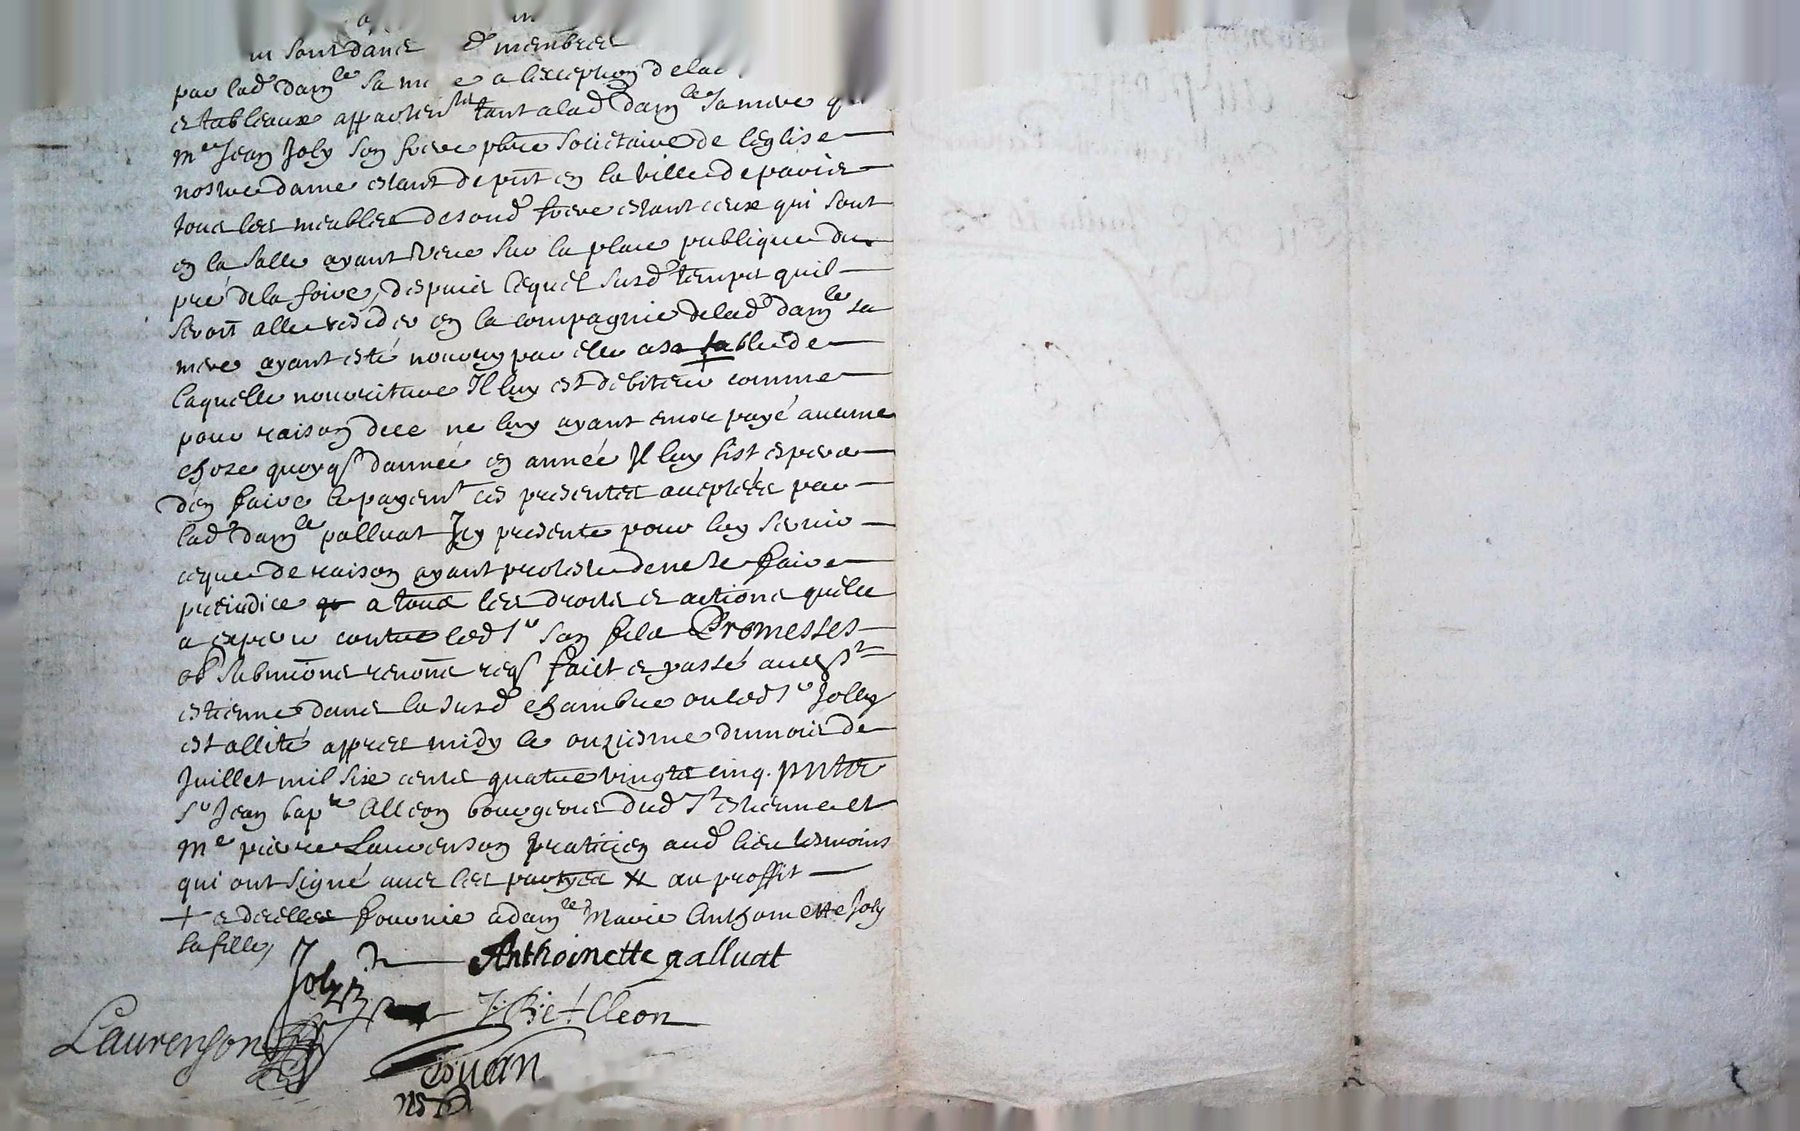 sont dans & membres
par lad damle sa a lexception de lad
et tableaux appartent tant a lad damle sa mere
Me Jean Joly son frere pbre societaire de leglise
nostre dame estant de pnt en la ville de paris
tous les meubles desond frere estant ceux qui sont
en la salle ayant veue sur la place publique du
pré de la foire, despuis lequel susd temps quil
seroit allé resider en la compagnie de lad damle sa
mere ayant esté nourry par elle a sa table de
laquelle nourriture Il luy est debiteur comme
pour raison dece ne luy ayant encor payé aucune
chose quoyq dannée en année Il luy fist esperer
den faire le payemt ces presentes acceptées par
lad damle palluat Icy presente pour luy servir
ceque de raison ayant protesté de ne se faire
preiudice a tous les droits et actions quelle
a contre led Sr son fils Promesses
ob submions renons req faict et passé audt St
estienne dans la susd chambre ou led Sr Jolly
est allité appres midy le onziesme du mois de
Juillet mil six cents quatre vingts cinq. pntz
Sr Jean bapte Alleon bourgeois dud St estienne et
Me pierre Laurenson praticien aud lieu tesmoins
qui ont signé avec les partyes X au proffit
+ et dicelles fournir a damle Marie Anthoinette Joly
sa fille,
Joly
Anthoinette palluat
J. B. Alleon
Laurenson